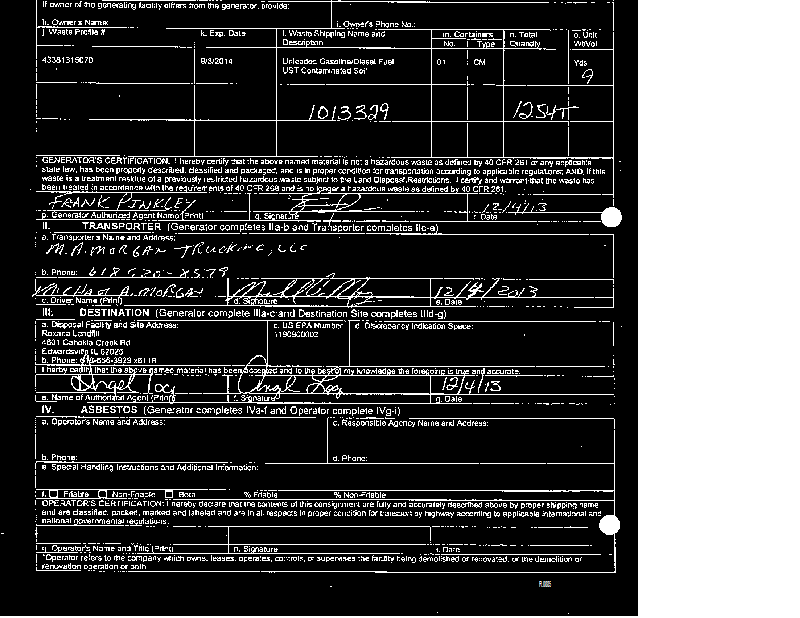 If owner of the generating facility differs from the generator, provide:
h. Owner's Name: i. Owner's Phone No.:
j. Waste Profile # k. Exp. Date l. Waste Shipping Name and Description m. Containers No. Type n. Total Quantity o. Unit Wt/Vol
43381315070 9/3/2014 Unleaded Gasoline/Diesel Fuel UST Contaminated Soil 01 CM Yds
9
1013329 1254T
GENERATOR'S CERTIFICATION: I hereby certify that the above named material is not a hazardous waste as defined by 40 CFR 261 or any applicable
state law, has been properly described, classified and packaged, and is in proper condition for transportation according to applicable regulations; AND, if this
waste is a treatment residue of a previously restricted hazardous waste subject to the Land Disposal Restrictions, I certify and warrant that the waste has
been treated in accordance with the requirements of 40 CFR 268 and is no longer a hazardous waste as defined by 40 CFR 261.
FRANK PINKLEY 12/4/13
p. Generator Authorized Agent Name (Print) q. Signature r. Date
II. TRANSPORTER (Generator completes IIa-b and Transporter completes IIc-e)
a. Transporter's Name and Address:
M.A. MORGAN TRUCKING, LLC
b. Phone: 618 520-8579
MICHAEL A. MORGAN 12/4/2013
c. Driver Name (Print) d. Signature e. Date
III. DESTINATION (Generator complete IIIa-c and Destination Site completes IIId-g)
a. Disposal Facility and Site Address: c. US EPA Number d. Discrepancy Indication Space:
Roxana Landfill 1190900002
4601 Cahokia Creek Rd
Edwardsville IL 62025
b. Phone: 618-656-3929 x611R
I hereby certify that the above named material has been accepted and to the best of my knowledge the foregoing is true and accurate.
Angel 12/4/13
e. Name of Authorized Agent (Print) f. Signature g. Date
IV. ASBESTOS (Generator completes IVa-f and Operator complete IVg-i)
a. Operator's Name and Address: c. Responsible Agency Name and Address:
b. Phone: d. Phone:
e. Special Handling Instructions and Additional Information:
f. Friable Non-Friable Both % Friable % Non-Friable
OPERATOR'S CERTIFICATION: I hereby declare that the contents of this consignment are fully and accurately described above by proper shipping name
and are classified, packed, marked and labeled and are in all respects in proper condition for transport by highway according to applicable international and
national governmental regulations.
g. Operator's Name and Title (Print) h. Signature i. Date
*Operator refers to the company which owns, leases, operates, controls, or supervises the facility being demolished or renovated, or the demolition or
renovation operation or both